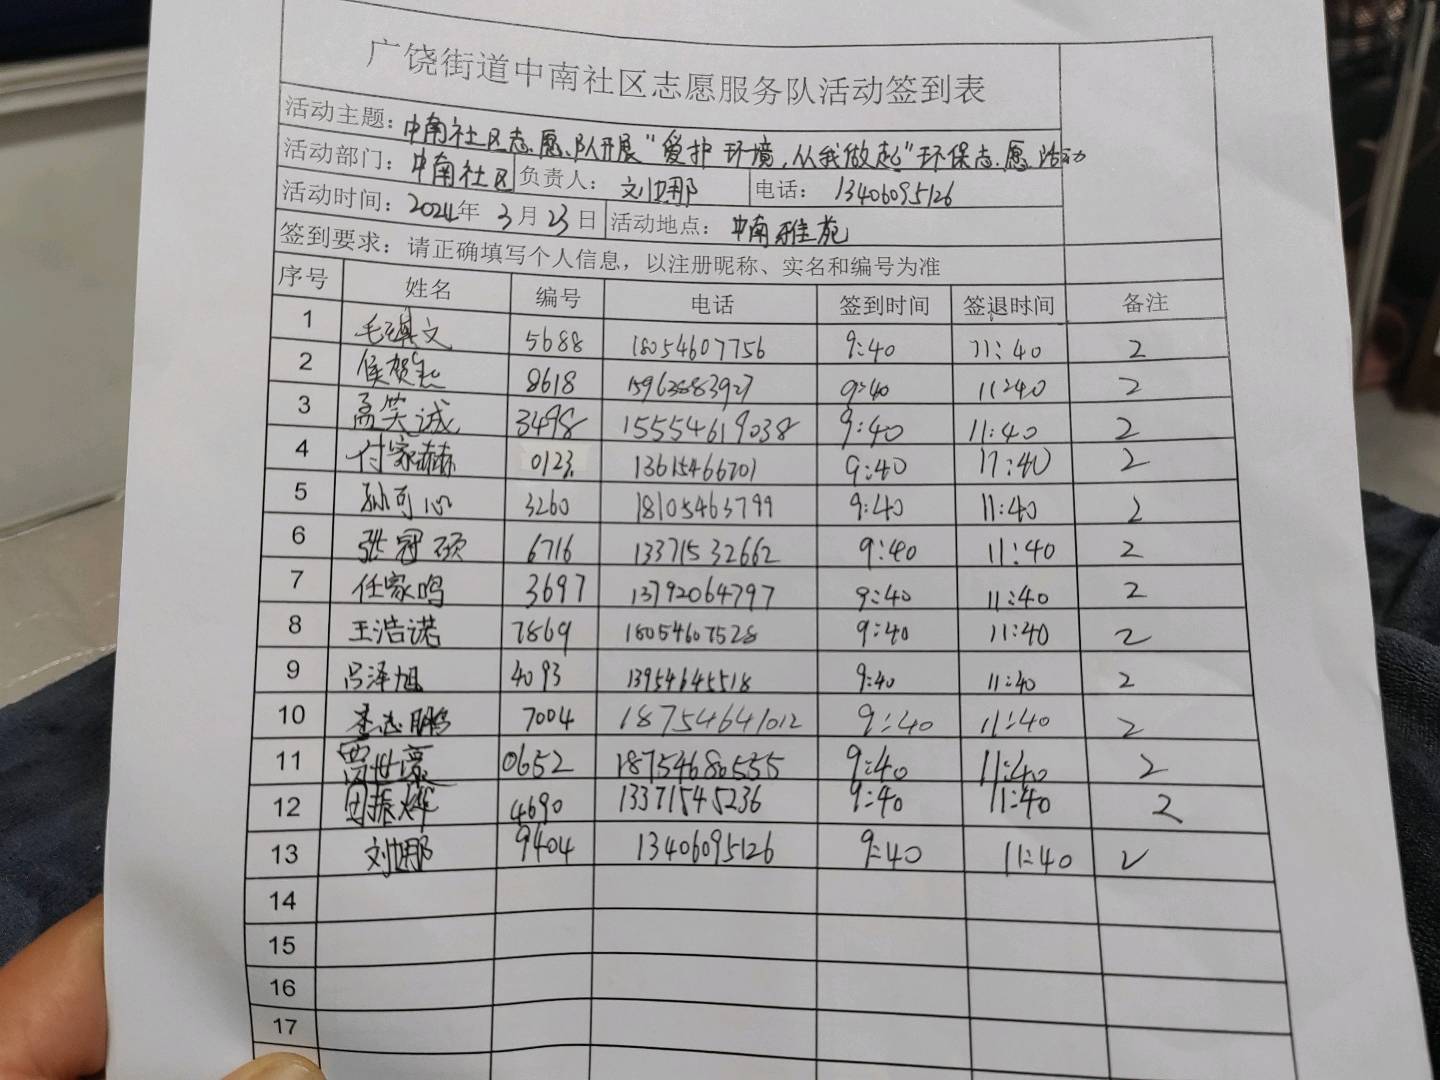 广饶街道中南社区志愿服务队活动签到表
活动主题：中南社区志愿队开展"爱护环境,从我做起"环保志愿活动
活动部门：中南社区 负责人：刘娜 电话：13406095126
活动时间：2024年 3月23日 活动地点：中南雅苑
签到要求：请正确填写个人信息，以注册昵称、实名和编号为准
序号 姓名 编号 电话 签到时间 签退时间 备注
1 毛琪文 5688 18054607756 9:40 11:40 2
2 侯贺 8618 15963883927 9:40 11:40 2
3 孟笑诚 3498 15554619038 9:40 11:40 2
4 付家赫 0123 13615466701 9:40 11:40 2
5 孙可心 3260 18105463799 9:40 11:40 2
6 张冠硕 6716 13371532662 9:40 11:40 2
7 任家鸣 3697 13792064797 9:40 11:40 2
8 王浩诺 7869 18054607528 9:40 11:40 2
9 吕泽旭 4093 13954645518 9:40 11:40 2
10 李志鹏 7004 18754641012 9:40 11:40 2
11 贾世豪 0652 18754680555 9:40 11:40 2
12 田振烨 4690 13371545236 9:40 11:40 2
13 刘娜 9404 13406095126 9:40 11:40 2
14
15
16
17